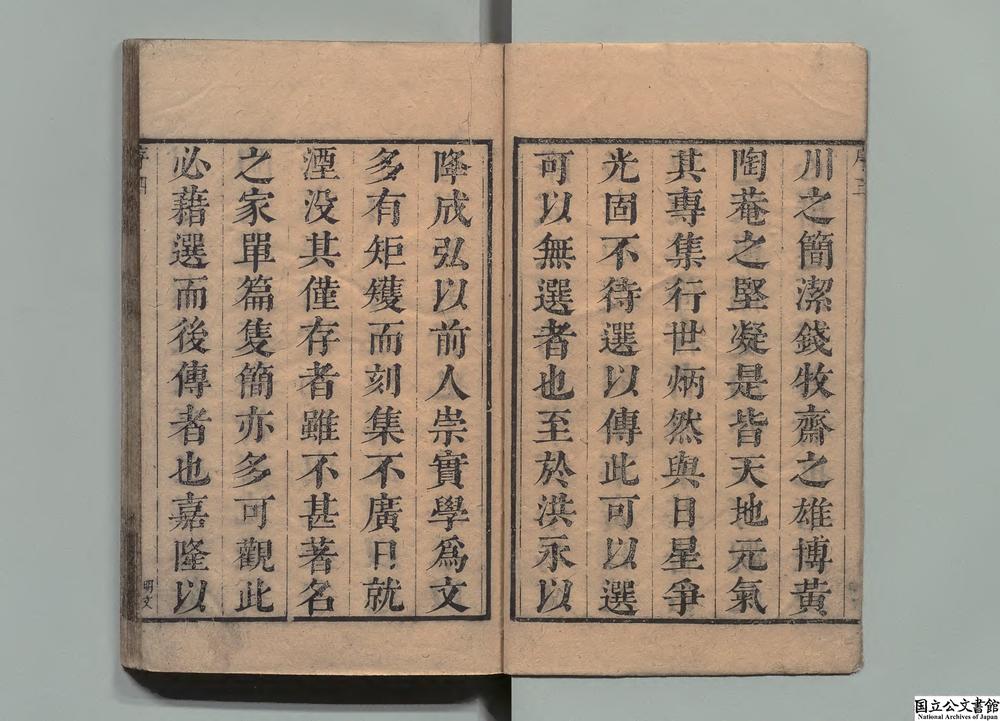 川之簡潔錢牧齋之雄博黃
陶菴之堅凝是皆天地元氣
其專集行世炳然與日星爭
光固不待選以傳此可以選
可以無選者也至於洪永以
降成弘以前人崇實學爲文
多有矩矱而刻集不廣日就
湮没其僅存者雖不甚著名
之家單篇隻簡亦多可觀此
必藉選而後傳者也嘉隆以
明文
国立公文書館
National Archives of Japan